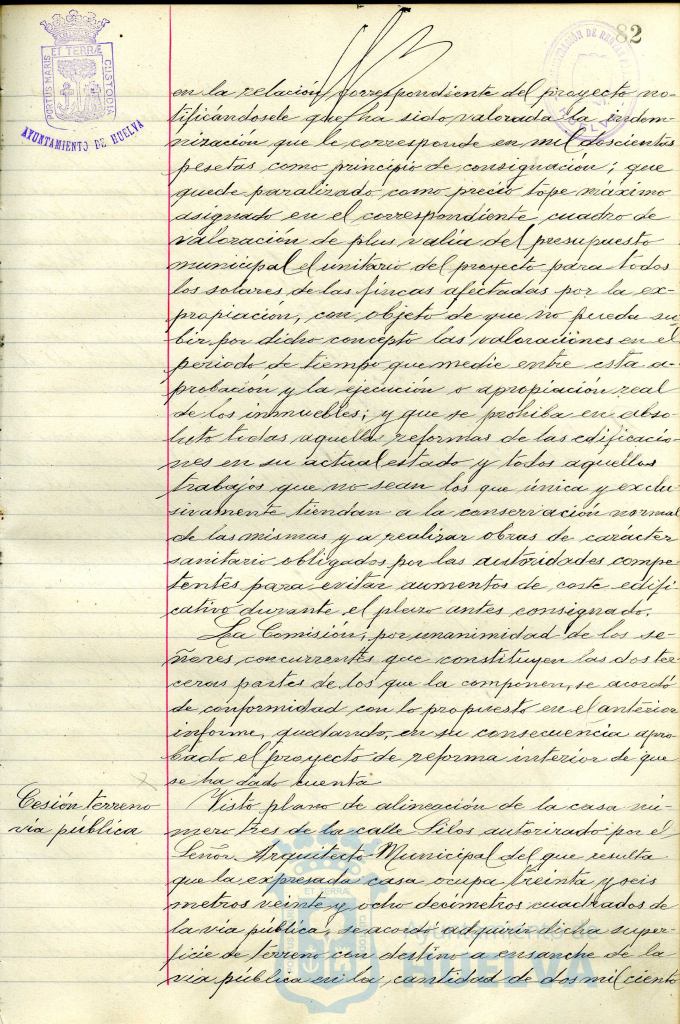 82
PORTUS MARIS ET TERRÆ CUSTODIA
AYUNTAMIENTO DE HUELVA
HUELVA
en la relación correspondiente del proyecto no-
tificándosele que ha sido valorada la indem-
nización que le corresponde en mil doscientas
pesetas como principio de consignación; que
quede paralizado como precio tope máximo
asignado en el correspondiente cuadro de
valoración de plus valia del presupuesto
municipal el unitario del proyecto para todos
los solares de las fincas afectadas por la ex-
propiación, con objeto de que no pueda su-
bir por dicho concepto las valoraciones en el
periodo de tiempo que medie entre esta a-
probacion y la ejecución o apropiación real
de los inmuebles; y que se prohiba en abso-
luto todas aquellas reformas de las edificacio-
nes en su actual estado y todos aquellos
trabajos que no sean los que única y exclu-
sivamente tiendan a la conservación normal
de las mismas y a realizar obras de carácter
sanitario obligados por las autoridades compe-
tentes para evitar aumentos de coste edifi-
cativo durante el plazo antes consignado.
La Comisión, por unanimidad de los se-
ñores concurrentes que constituyen las dos ter-
ceras partes de los que la componen, se acordó
de conformidad con lo propuesto en el anterior
informe, quedando, en su consecuencia apro-
bado el proyecto de reforma interior de que
se ha dado cuenta
Cesión terreno
vía pública
Visto plano de alineación de la casa nú-
mero tres de la calle Silos autorizado por el
Señor Arquitecto Municipal del que resulta
que la expresada casa ocupa treinta y seis
metros veinte y ocho decimetros cuadrados de
la via pública, se acordó adquirir dicha super-
ficie de terreno con destino a ensanche de la
via pública en la cantidad de dos mil ciento
Ayuntamiento de
HUELVA